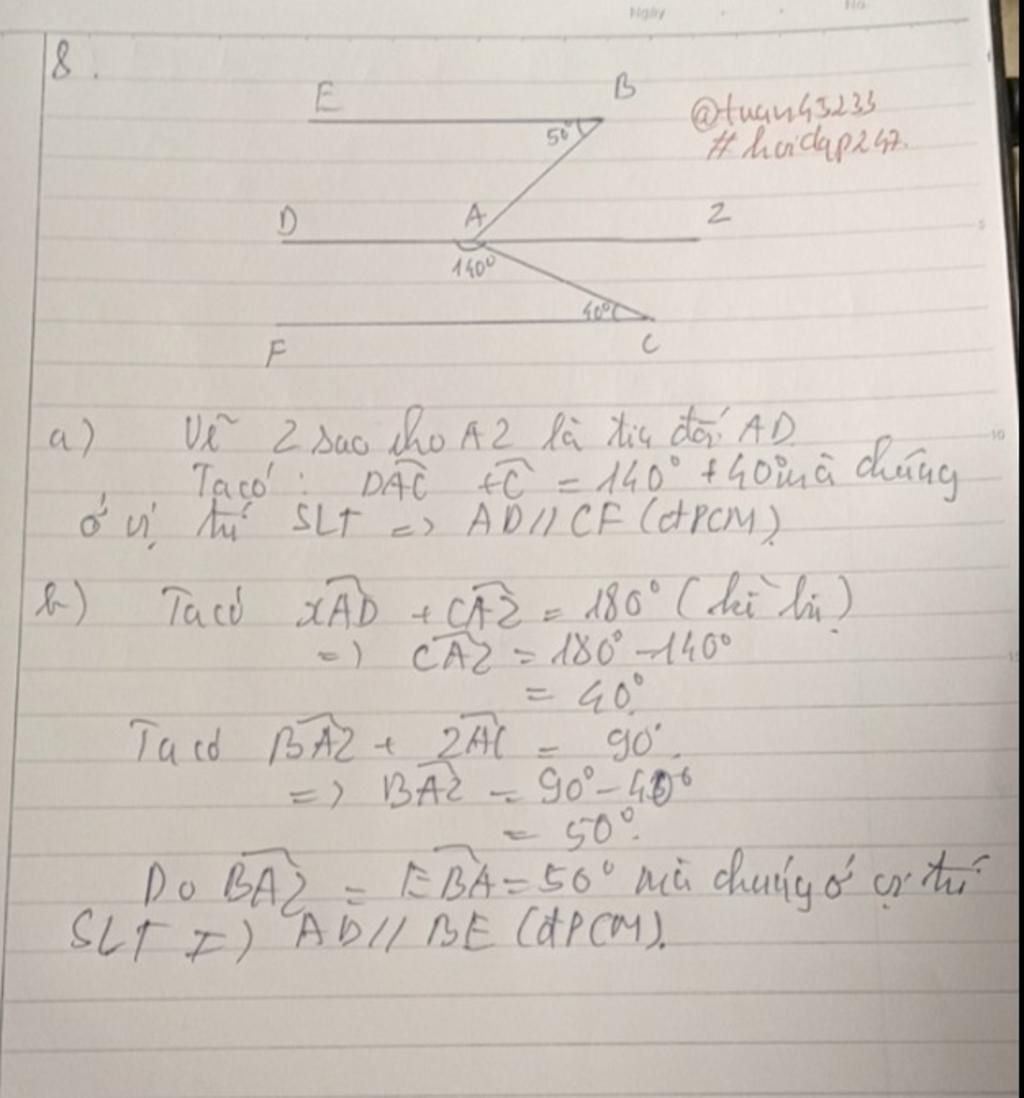 Ngày
No.
8.
E
B
50°
@tuan45233
#hoidap247.
D
A
2
140°
40°
F
C
a) Vẽ 2 sao cho A2 là tia đối AD
Ta có: DAC + C = 140° + 40° mà chúng
ở vị trí SLT => AD // CF (đPCM)
b) Ta có xAD + CA2 = 180° (kề bù)
=> CA2 = 180° - 140°
= 40°
Ta có BA2 + 2AC = 90°.
=> BA2 = 90° - 40°
= 50°.
Do BA2 = EBA = 50° mà chúng ở vị trí
SLT => AD // BE (đPCM).